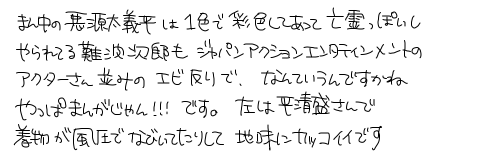 まん中の悪源太義平は1色で彩色してあって亡霊っぽいし
やられてる難波次郎もジャパンアクションエンタテインメントの
アクターさん並みのエビ反りで、なんていうんですかね
やっぱまんがじゃん!!!です。左は平清盛さんで
着物が風圧でなびいてたりして地味にカッコイイです